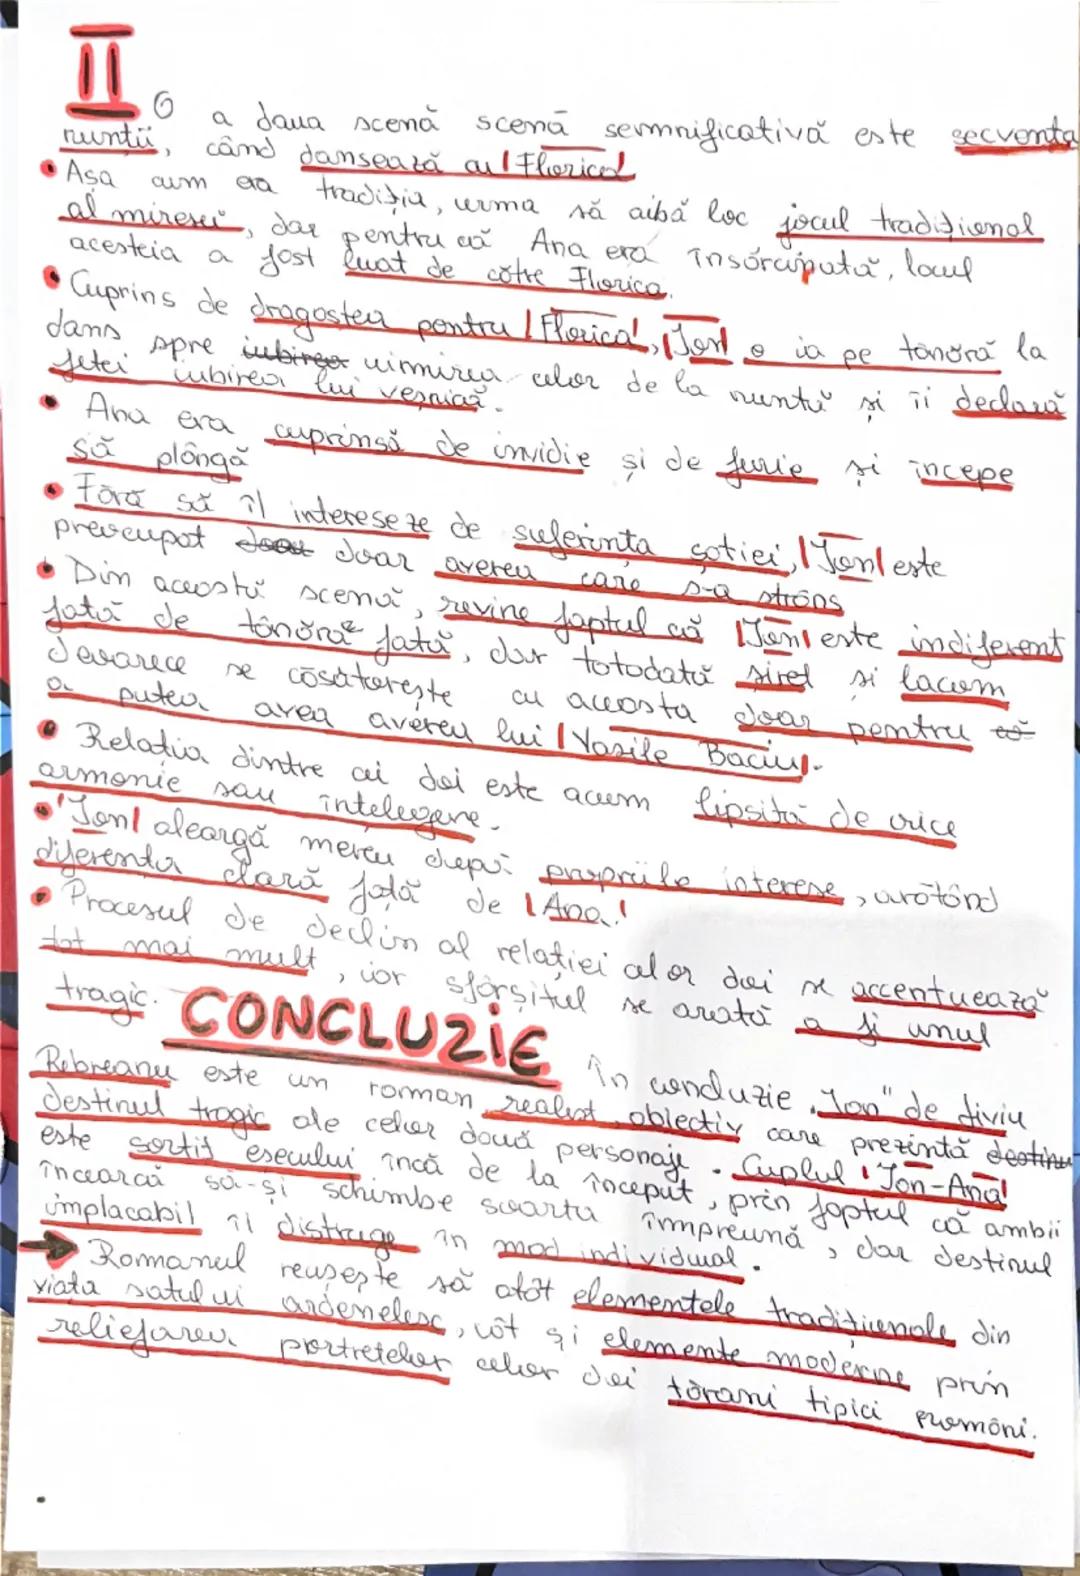 II
O a doua scenă scenă semnificativă este secvența
nunții, când dansează cu Florica
• Așa cum era tradiția, urma să aibă loc jocul tradițional
al miresei, dar pentru că Ana era însărcinată, locul
acesteia a fost luat de către Florica.
• Cuprins de dragostea pentru Florica, Ion o ia pe tânără la
dans spre iubirea uimirea celor de la nuntă și îi declară
fetei iubirea lui veșnică.
• Ana era cuprinsă de invidie și de furie și începe
să plângă
• Fără să îl intereseze de suferința soției, Ion este
preocupat doar doar averea care s-a strâns
• Din această scenă, revine faptul că Ion este indiferent
față de tânăra fată, dar totodată șiret și lacom
deoarece se căsătorește cu aceasta doar pentru că
a putea avea averea lui Vasile Baciu.
• Relația dintre cei doi este acum lipsită de orice
armonie sau înțelegere.
• Ion aleargă mereu după propriile interese, arătând
diferența clară față de Ana!
• Procesul de declin al relației celor doi se accentuează
tot mai mult, iar sfârșitul se arată a fi unul
tragic. CONCLUZIE
În concluzie „Ion" de Liviu
Rebreanu este un roman realist obiectiv care prezintă destinu
destinul tragic ale celor două personaje. Cuplul Ion-Ana
este sortit eșecului încă de la început, prin faptul că ambii
încearcă să-și schimbe soarta împreună, dar destinul
implacabil îl distruge în mod individual.
→ Romanul reușește să atât elementele tradiționale din
viața satului ardenelesc, cât și elemente moderne prin
reliefarea portretelor celor doi țărani tipici români.